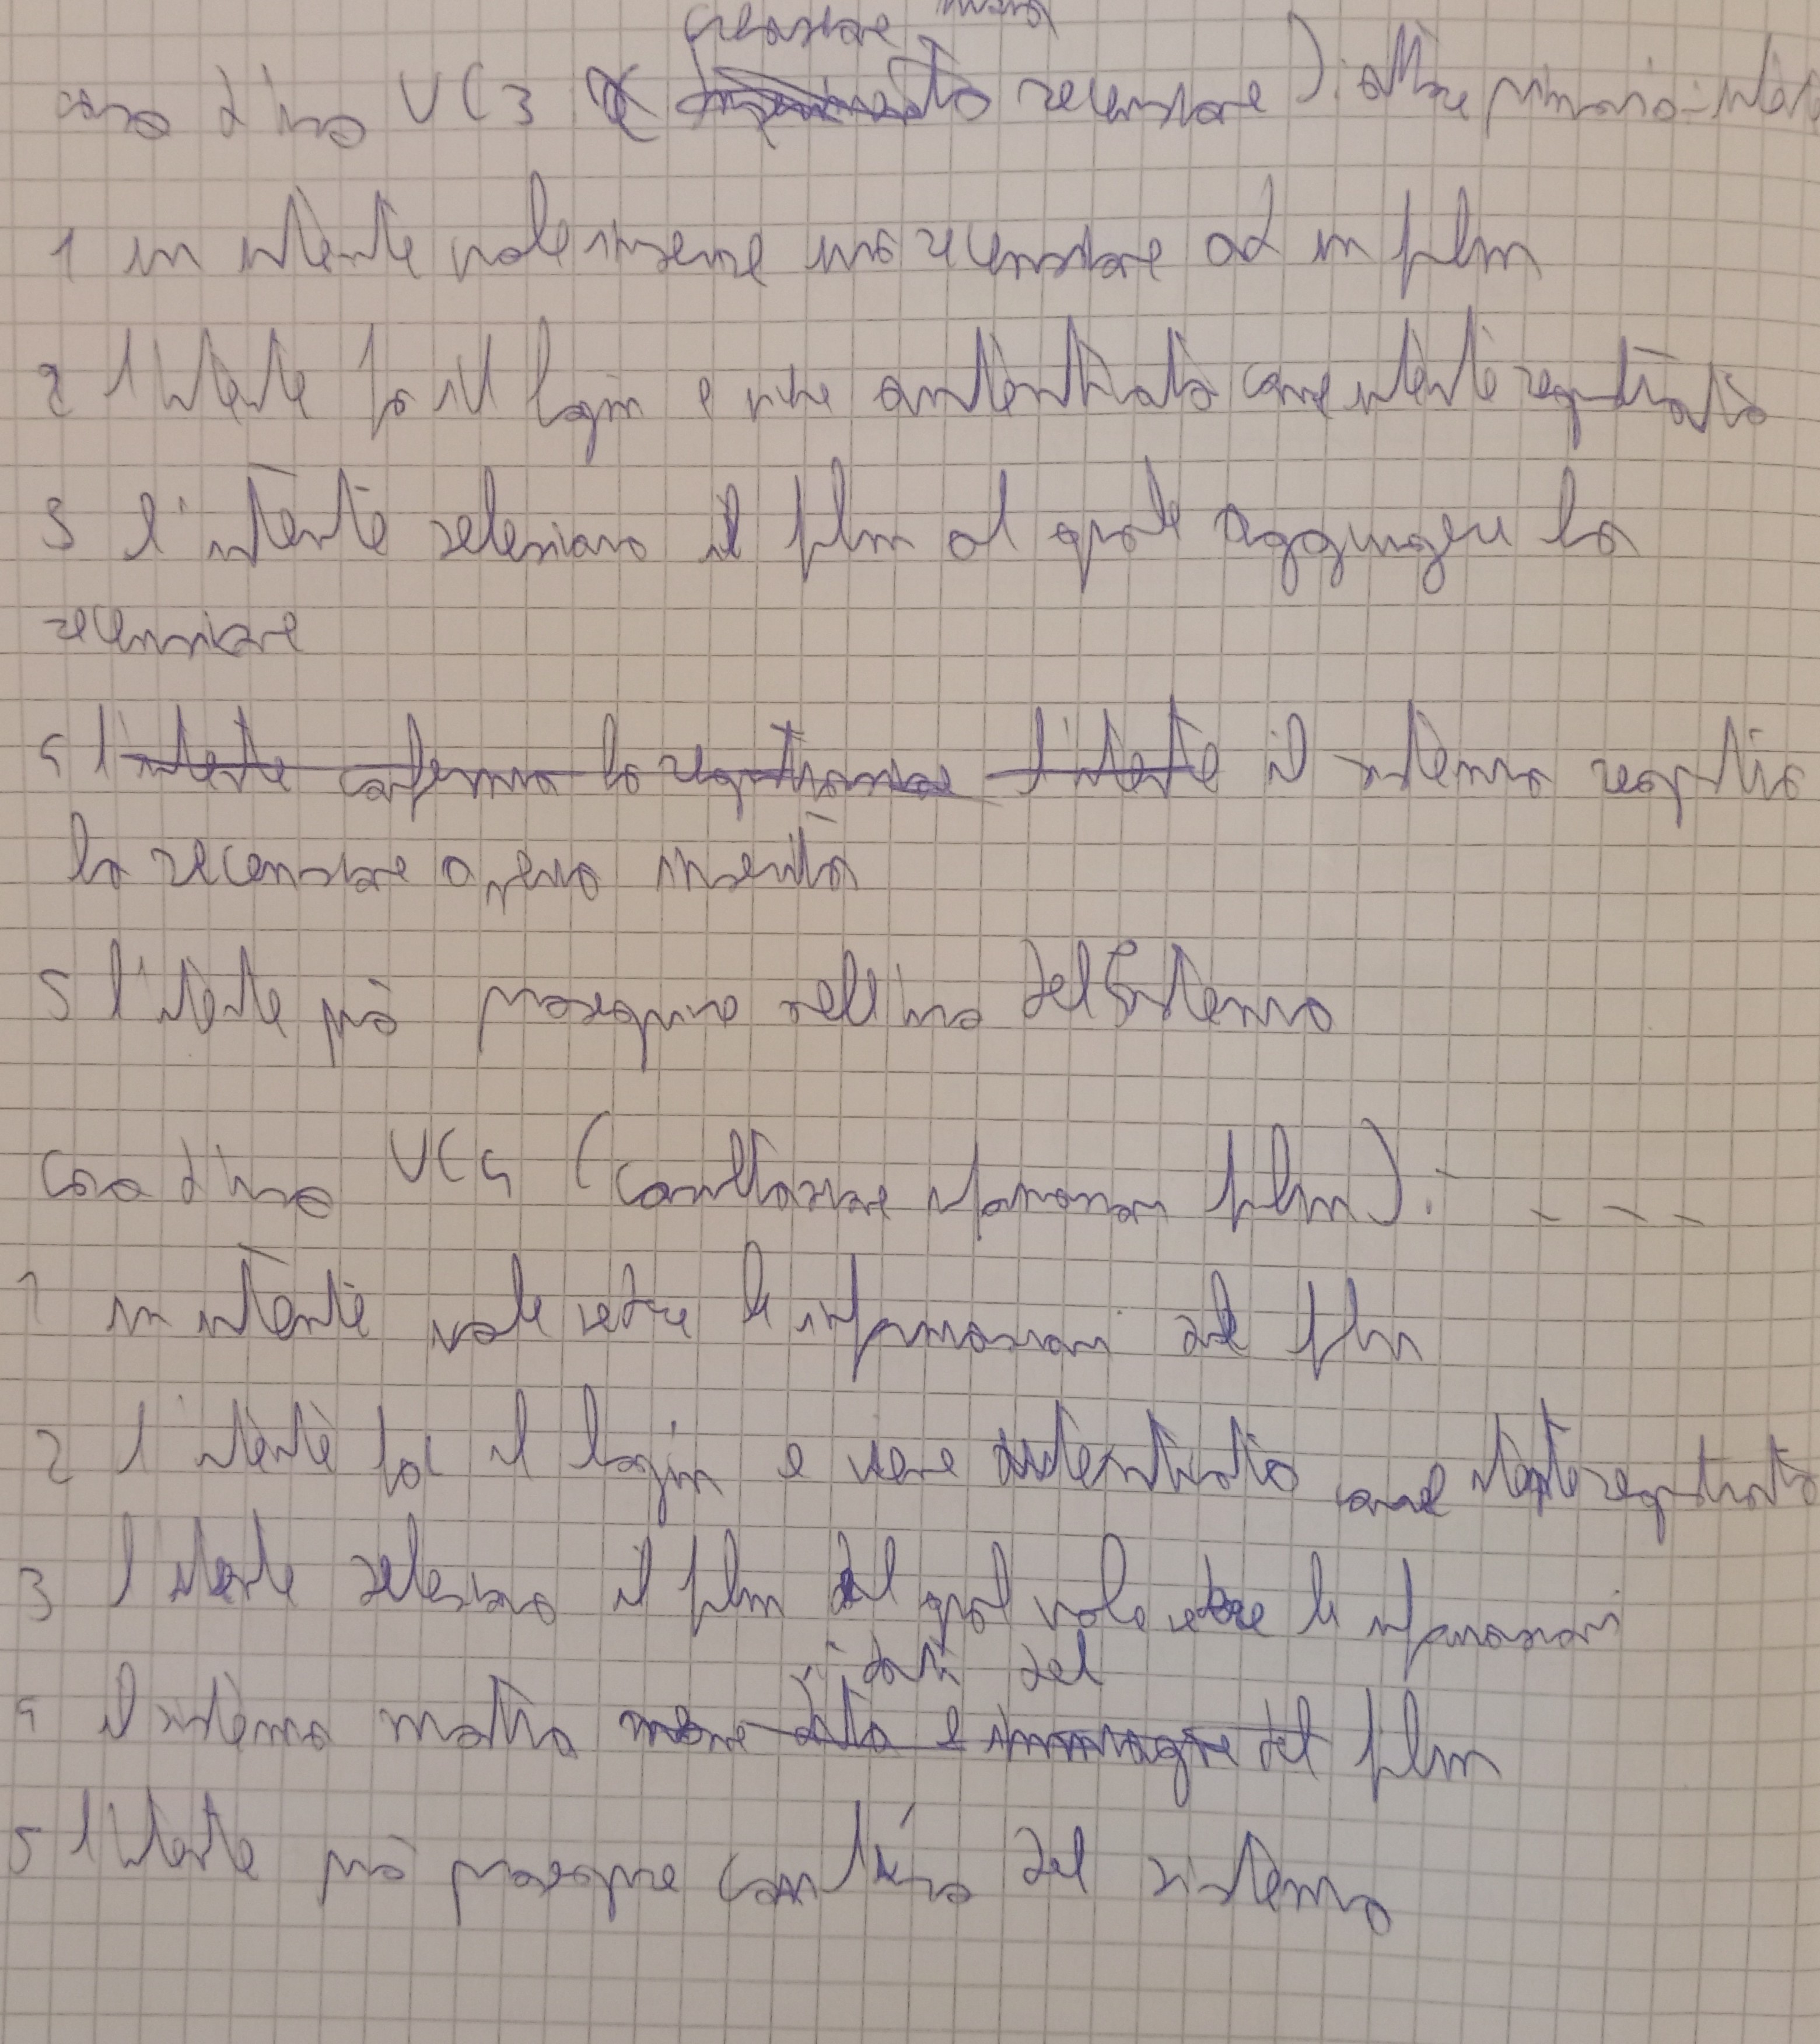 creazione nuova
caso d'uso UC3 ( inserimento recensione ): attore primario:
1 un utente vuole inserire una recensione ad un film
2 l'utente fa il login e viene autenticato come utente registrato
3 l'utente seleziona il film al quale aggiungere la
recensione
4 l'utente conferma la registrazione l'utente il sistema registra
la recensione appena inserita
5 l'utente può proseguire nell'uso del Sistema
caso d'uso UC4 (consultazione informazioni film): - - - -
1 un utente vuole vedere le informazioni del film
2 l'utente fa il login e viene autenticato come utente registrato
3 l'utente seleziona il film del qual vuole vedere le informazioni
i dati del
4 il sistema mostra nome data e immagine del film
5 l'utente può proseguire con l'uso del sistema